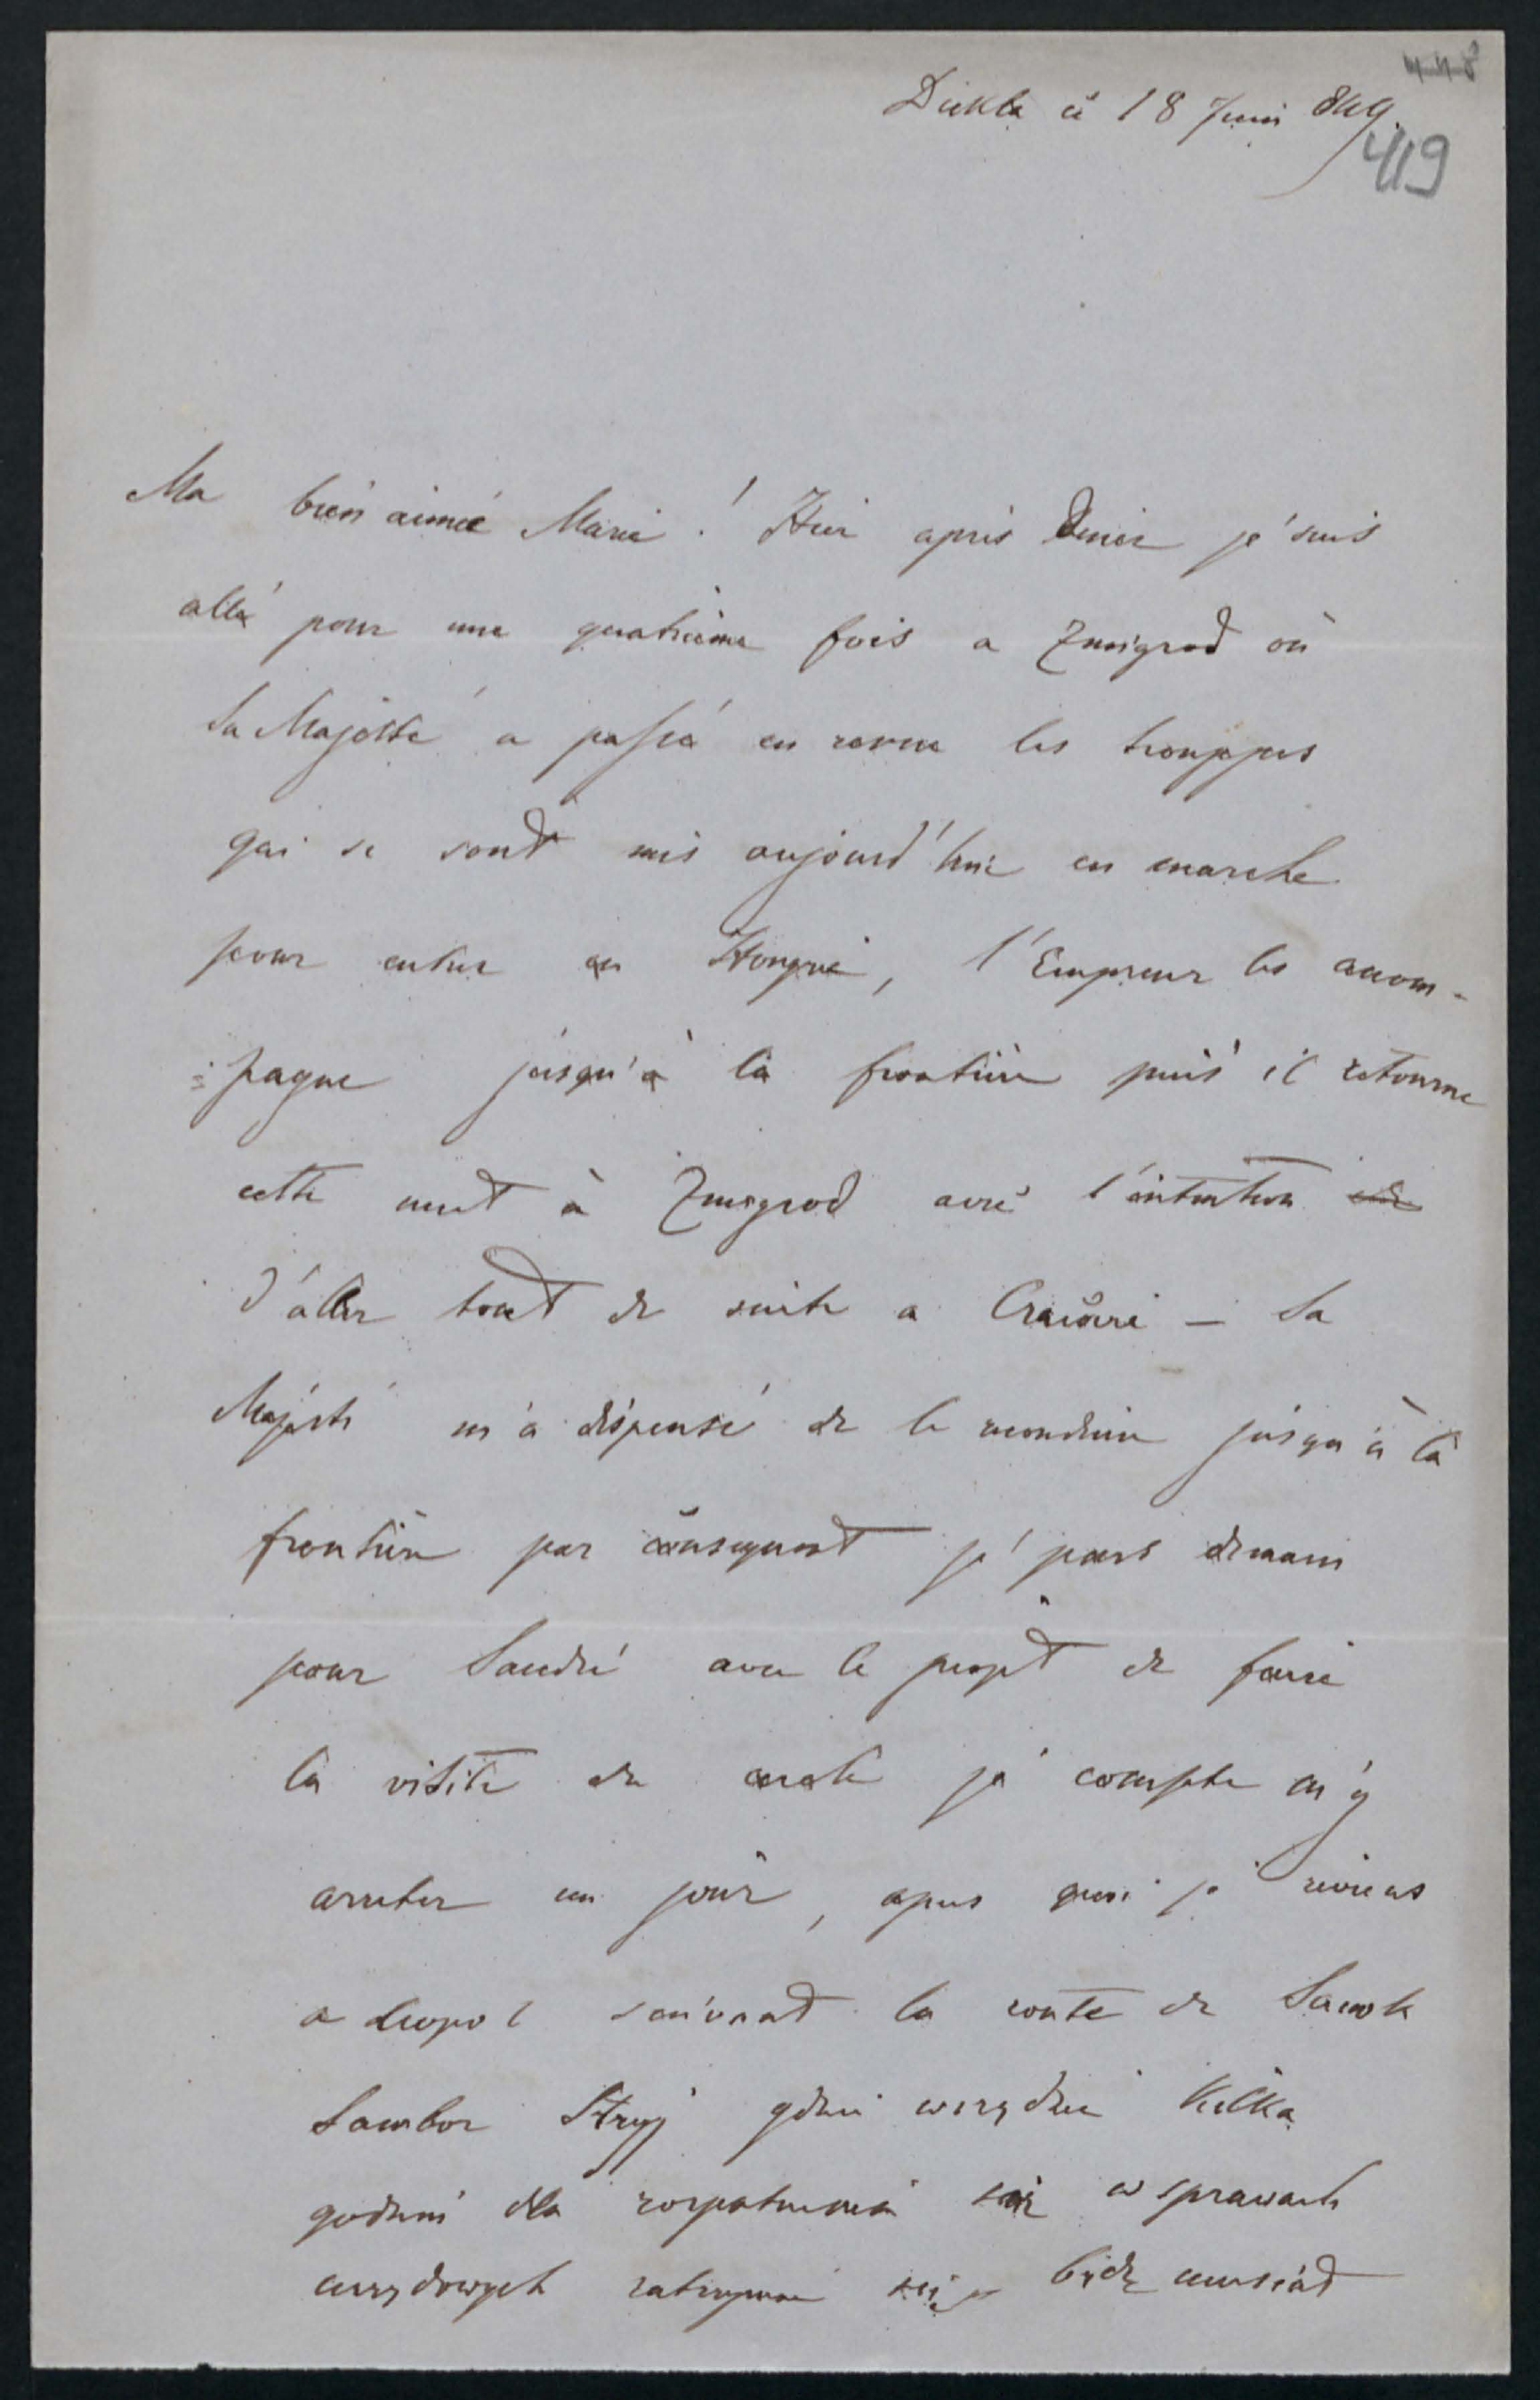 448
Dukla a 18 Juni 849.
419
Ma bien aimée Marie ! Hier apris diner je suis
allé pour une quatrième fois a Zmigrod où
Sa Majesté a passé en revue les trouppes
qui se sont mis aujourd'hui en marche
pour entrer en Hongrie, l'Empreur les accom-
=pagne jusqu'à la frontière puis il retourne
cette nuit à Zmigrod avec l'intention de
d'aller tout de suite a Cracovie – Sa
Majesté m'a dispensé de le reconduire jusqu'à la
frontière par consequent je pars demain
pour Sandec avec le projet de faire
la visite du cercle je compte m'y
arreter un jour, apres quoi je reviens
a Leopol suivant la route de Sanok
Sambor Stryj gdzie wszędzie kilka
godzin dla rozpatrzenia się w sprawach
urzędowych zatrzymać się będę musiał